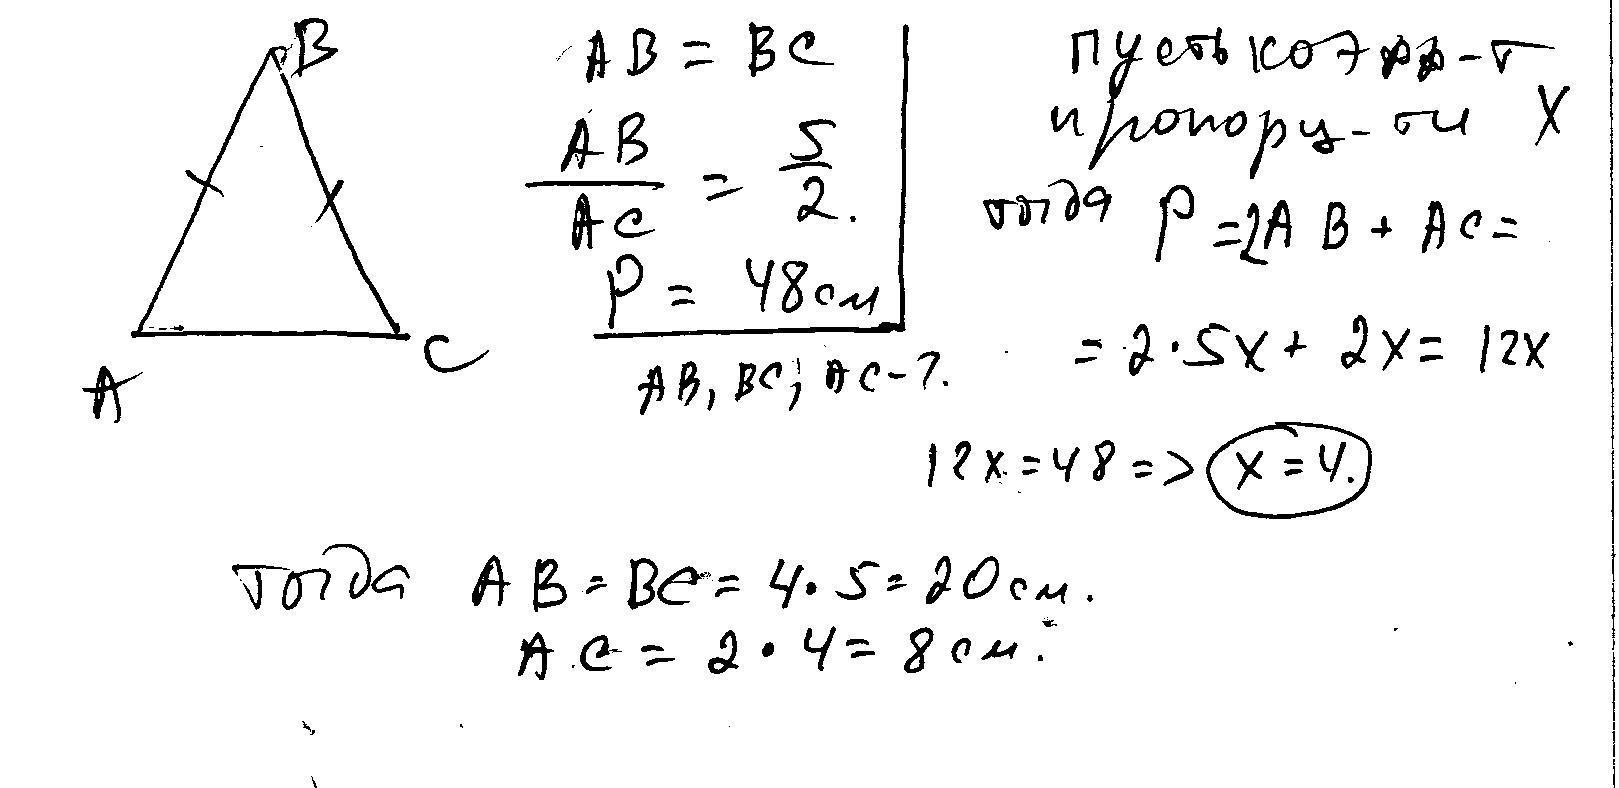 B
A
C
AB = BC
AB/AC = 5/2.
P = 48см
AB, BC; AC-?.
пусть коэфф-т
пропорц-ти X
тогда P = 2AB + AC =
= 2·5x + 2x = 12x
12x = 48 => x = 4.
тогда AB = BC = 4·5 = 20см.
AC = 2·4 = 8см.